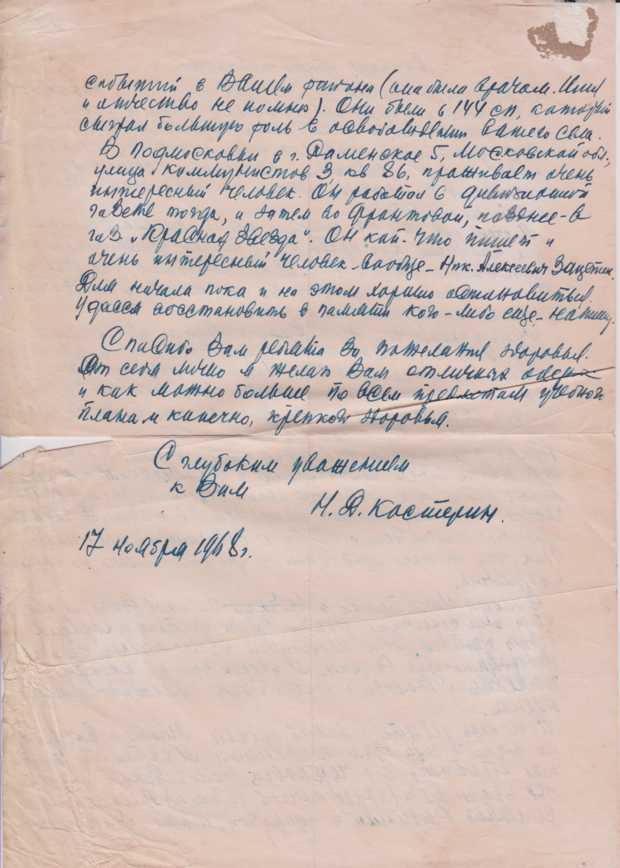 событий в Вашем районе (она была врачом. Имя
и отчество не помню). Они были в 144 сп, который
сыграл большую роль в освобождении вашего села.
В Подмосковьи в г. Раменское 5, Московской обл.,
улица Коммунистов 3 кв 86, проживает очень
интересный человек. Он работал в дивизионной
газете тогда, а затем во фронтовой, позднее - в
газ „Красная Звезда". Он кой-что пишет и
очень интересный человек вообще - Ник. Алексеевич
Для начала пока и на этом хорошо остановиться.
Удасся восстановить в памяти кого-либо еще - напишу.
Спасибо Вам ребята за пожелания здоровья.
От себя лично я желаю Вам отличных
и как можно больше по всем предметам учебного
плана и конечно, крепкого здоровья.
С глубоким уважением
к Вам
Н. Д. Костерин.
17 ноября 1968 г.